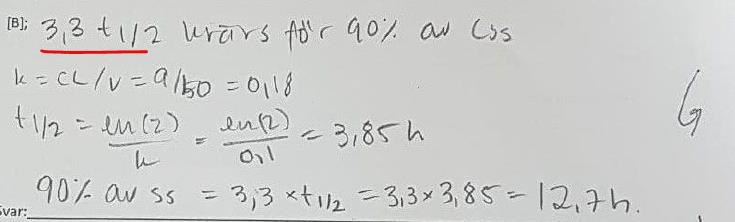 [B]; 3,3 t1/2 krävs för 90% av Css
k = CL/V = 9/50 = 0,18
t1/2 = ln(2)/k = ln(2)/0,1 = 3,85 h
90% av ss = 3,3 × t1/2 = 3,3 × 3,85 = 12,7h.
Svar:
G